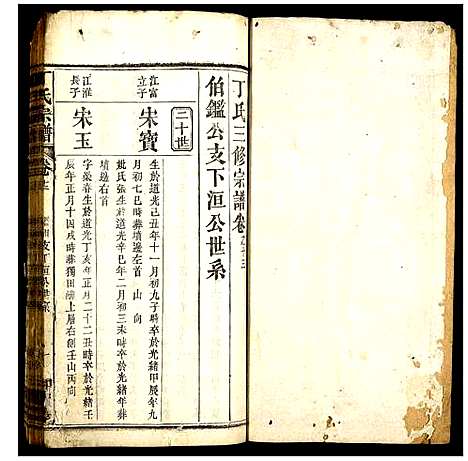 丁氏三修宗譜卷之十三
伯鑑公支下洹公世系
二十世
江富
立子
宋寶
生於道光己丑年十一月初九子時卒於光緒甲辰年九
月初七巳時葬墳邊左首 山 向
妣氏張生於道光辛巳年二月初三未時卒於光緒年葬
墳邊右首
江淮
長子
宋玉
字榮春生於道光丁亥年正月二十二丑時卒於光緒壬
辰年正月十四戌時葬獨田湖上屠右劍壬山丙向
氏宗譜
卷